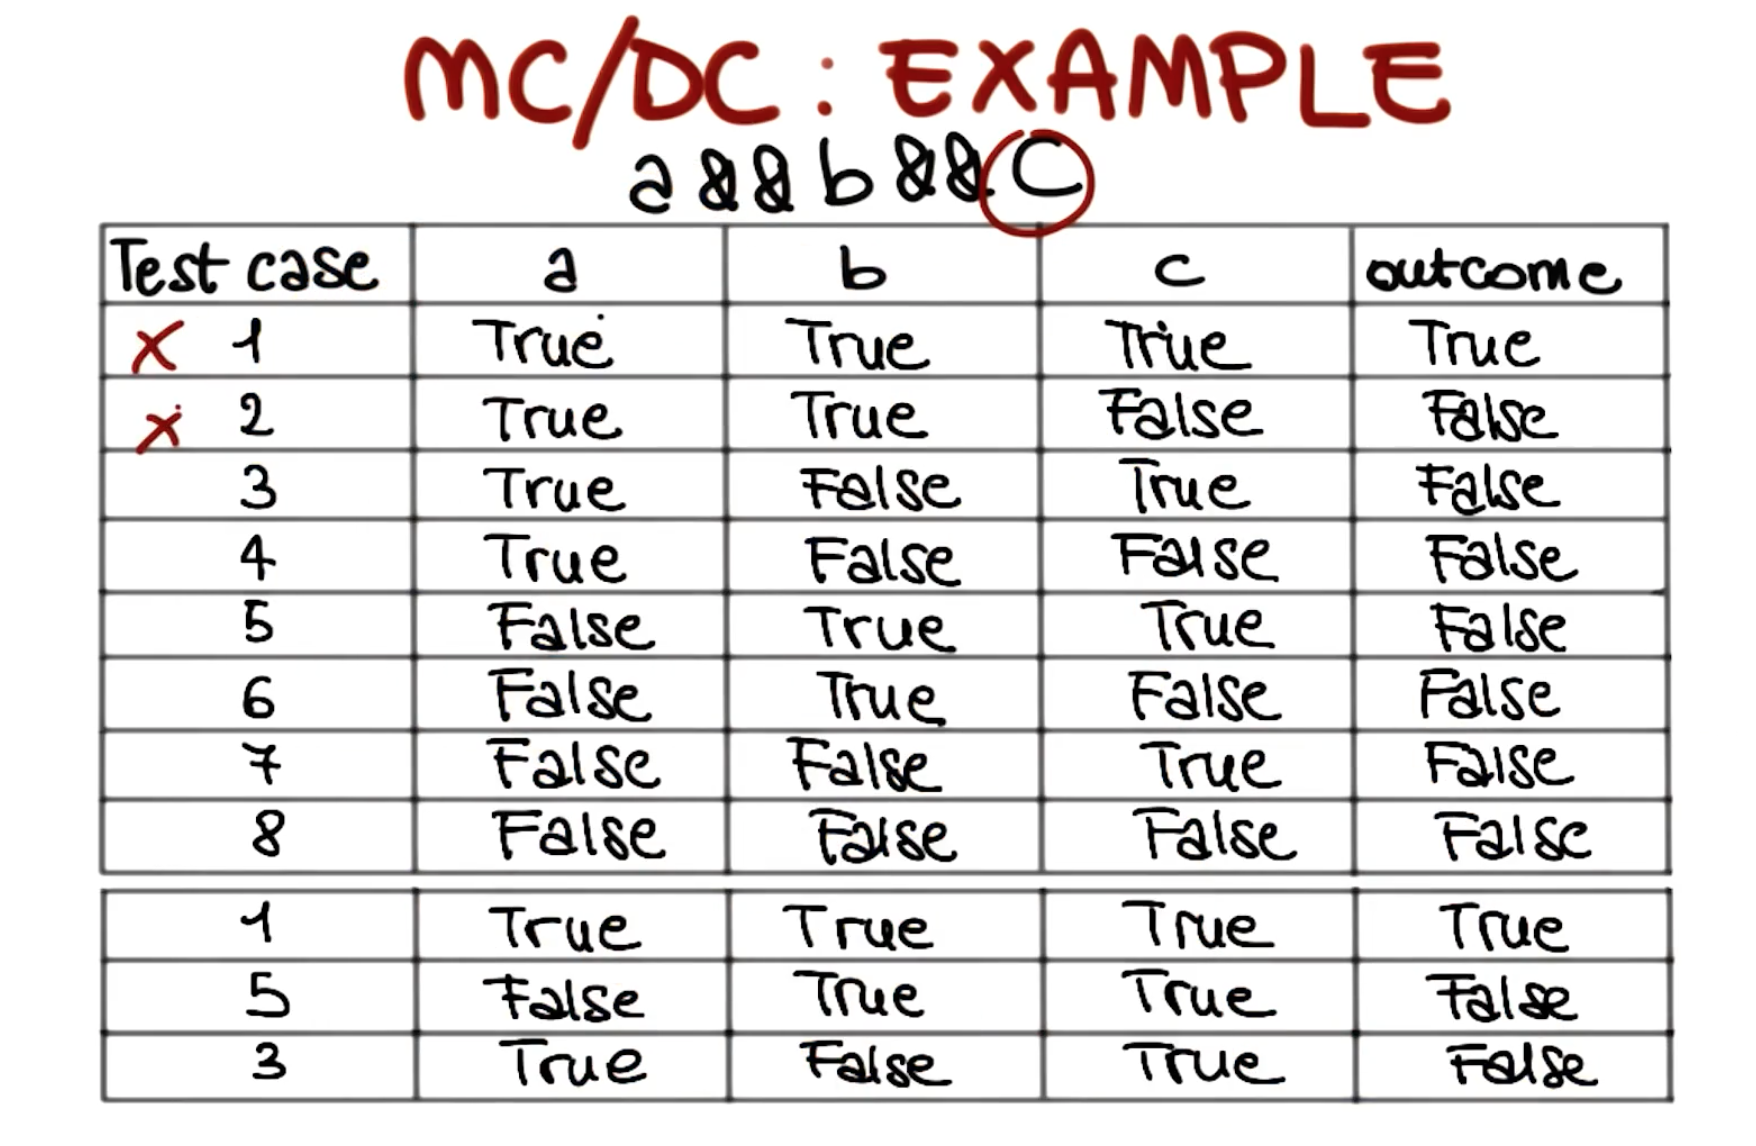 MC/DC: EXAMPLE
a && b && C
Test case a b c outcome
X 1 True True True True
X 2 True True False False
3 True False True False
4 True False False False
5 False True True False
6 False True False False
7 False False True False
8 False False False False
1 True True True True
5 False True True False
3 True False True False